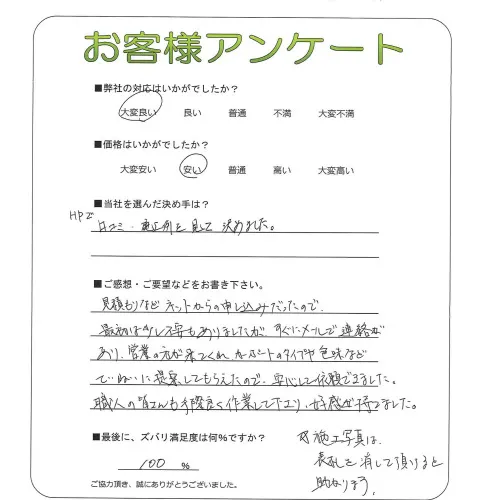 お客様アンケート
■弊社の対応はいかがでしたか?
大変良い 良い 普通 不満 大変不満
■価格はいかがでしたか?
大変安い 安い 普通 高い 大変高い
■当社を選んだ決め手は?
HPで
口コミ・施工例を見て決めました。
■ご感想・ご要望などをお書き下さい。
見積もりなどネットからの申し込みだったので、
最初は少し不安もありましたが、すぐにメールで連絡が
あり、営業の方が来てくれ、カーポートのタイプや色味など
ていねいに提案してもらえたので、安心して依頼できました。
職人の皆さんも手際良く作業して下さり、好感が持てました。
■最後に、ズバリ満足度は何%ですか?
100 %
施工写真は、
表札を消して頂けると
助かります。
ご協力頂き、誠にありがとうございました。